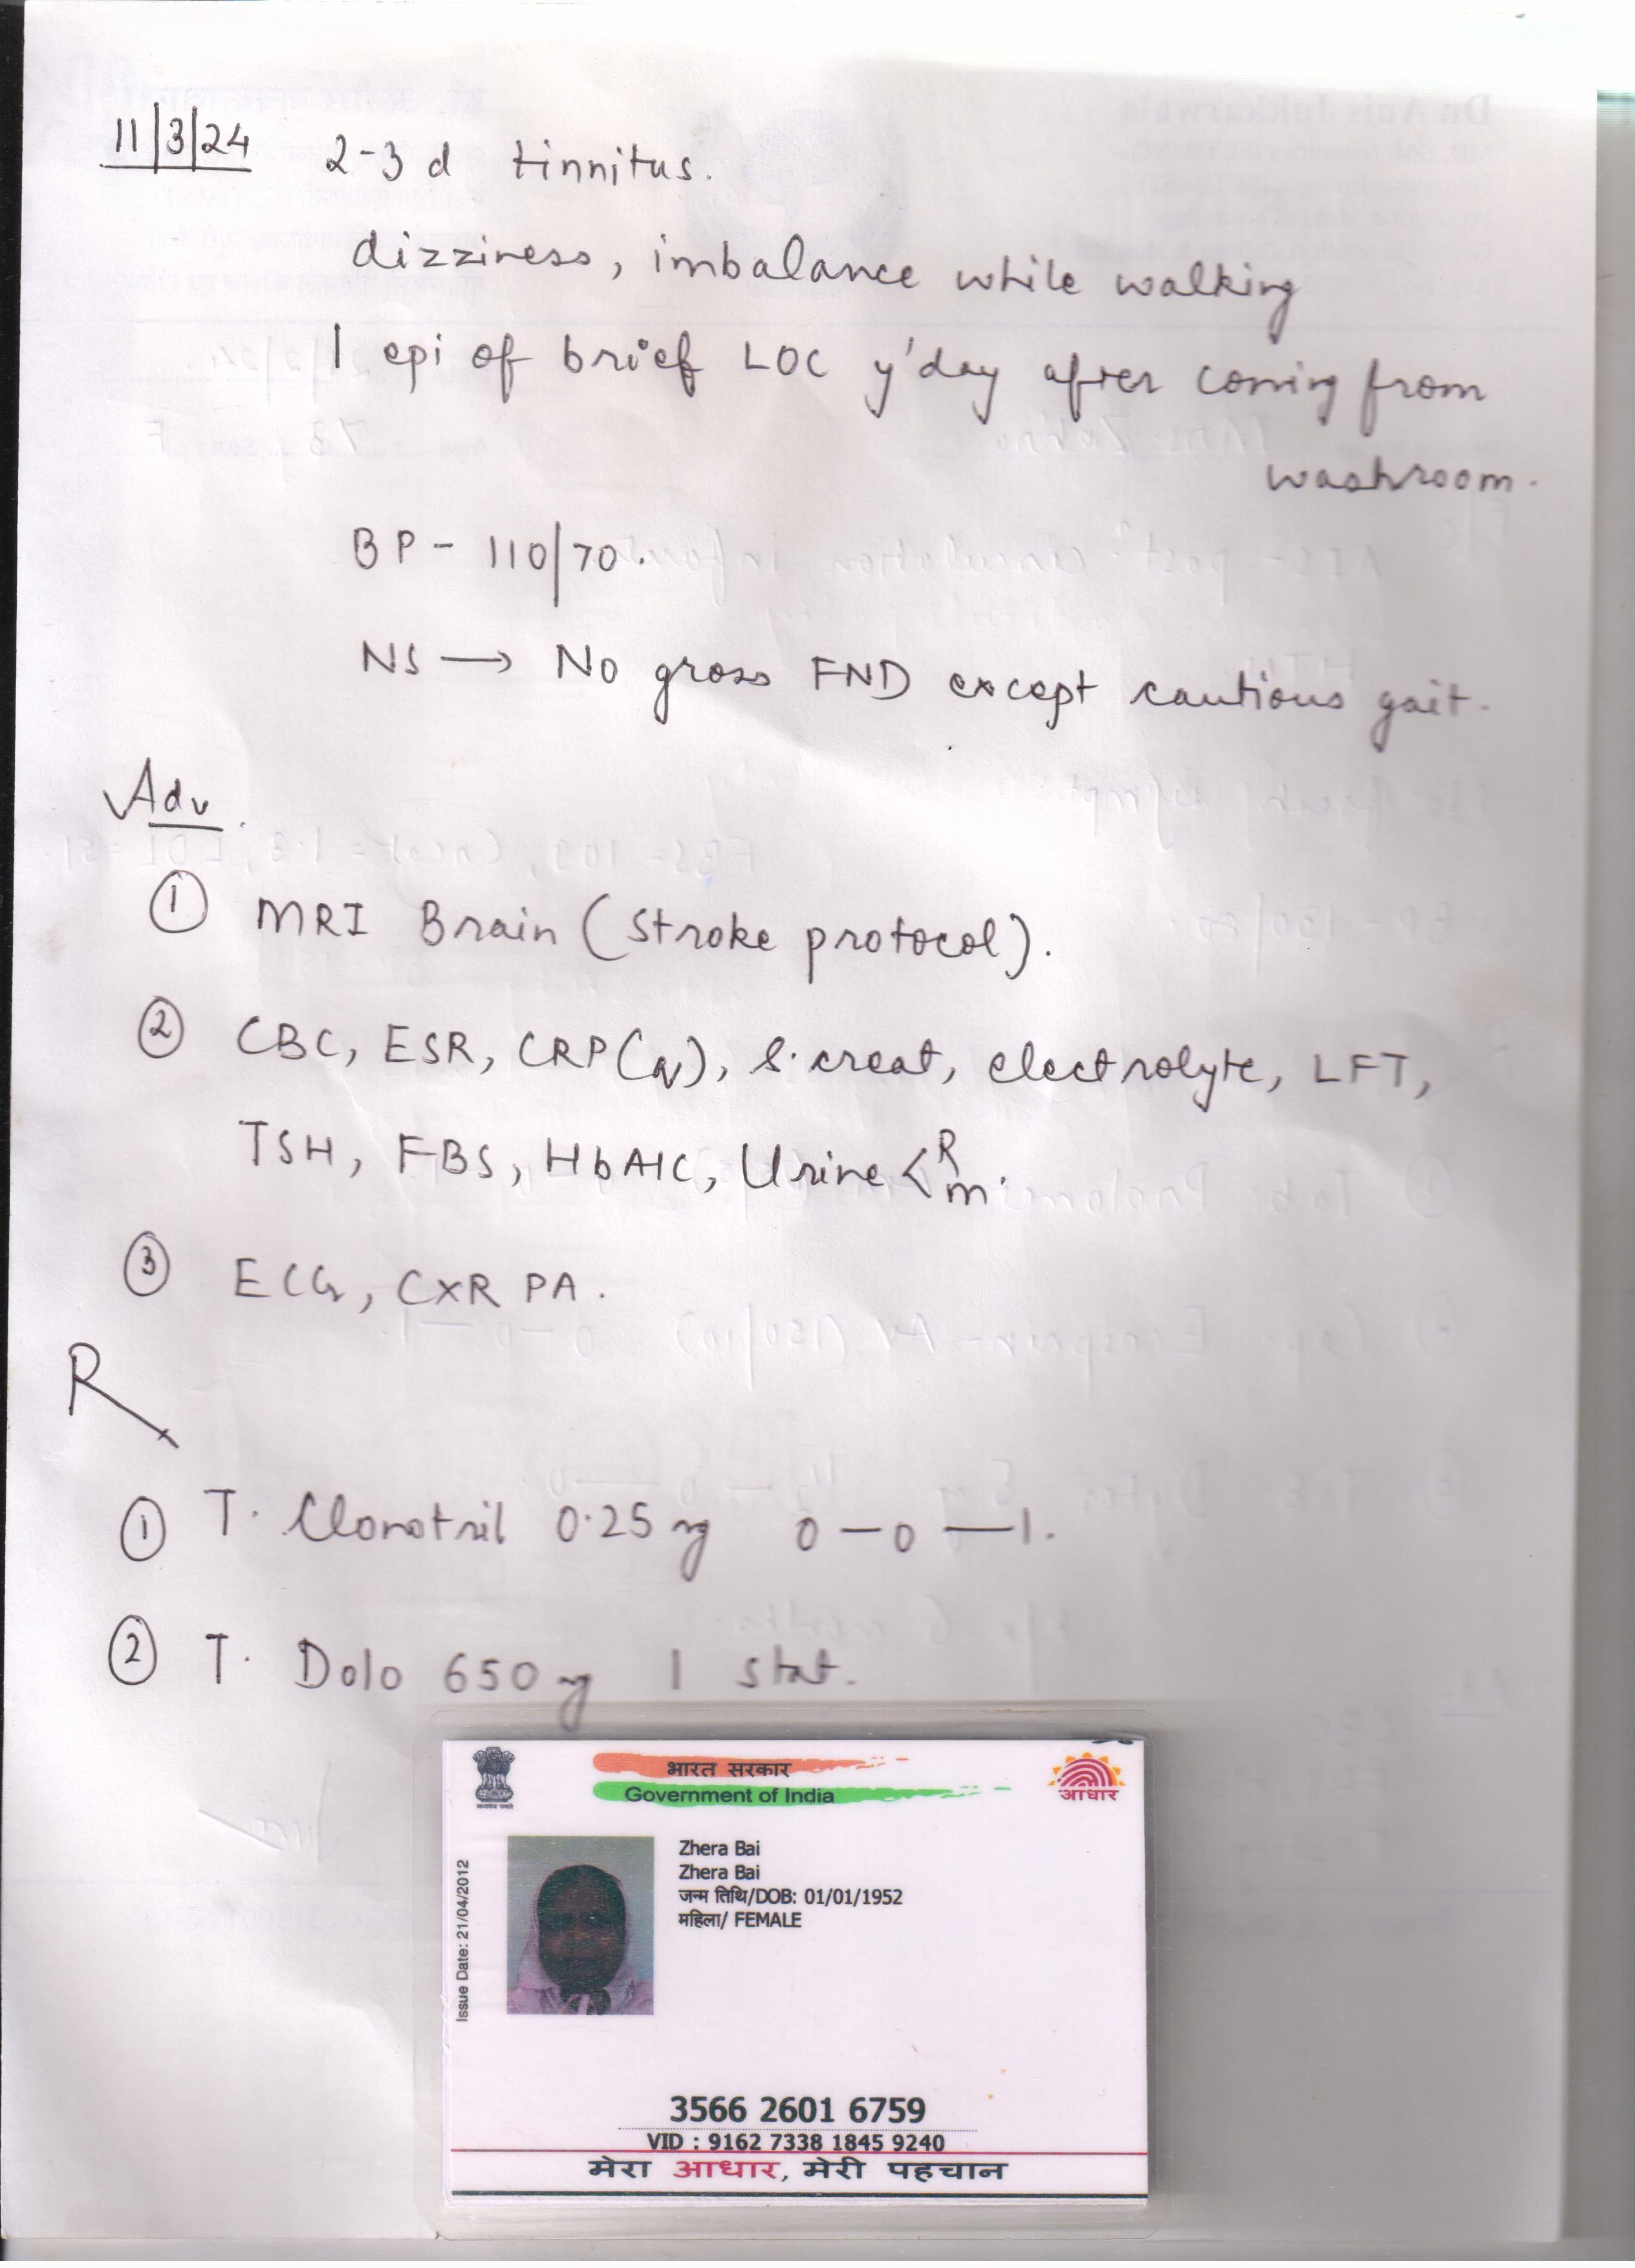 11/3/24 2-3 d tinnitus.
dizziness, imbalance while walking
1 epi of brief LOC y'day after coming from
washroom.
BP - 110/70.
NS → No gross FND except cautious gait.
Adv.
① MRI Brain (Stroke protocol).
② CBC, ESR, CRP(q), S. creat, electrolyte, LFT,
TSH, FBS, HbA1C, Urine < R
m.
③ ECG, CXR PA.
R
① T. Clonotril 0.25 mg 0-0-1.
② T. Dolo 650 mg 1 stat.
भारत सरकार
Government of India
आधार
Zhera Bai
Zhera Bai
जन्म तिथि/DOB: 01/01/1952
महिला/ FEMALE
Issue Date: 21/04/2012
3566 2601 6759
VID : 9162 7338 1845 9240
मेरा आधार, मेरी पहचान